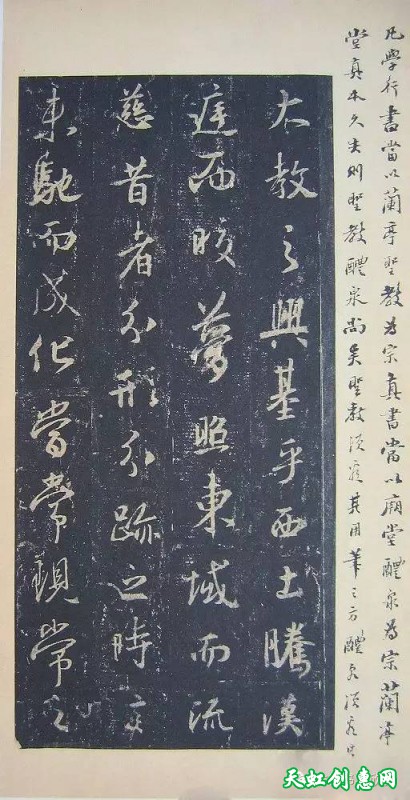 凡學行書當以蘭亭聖教為宗真書當以廟堂醴泉為宗蘭亭
堂真本久失則聖教醴泉尚矣聖教須究其用筆之方醴泉須究
大教之興基乎西土騰漢
庭而皎夢照東域而流
慈昔者分形分跡之時言
未馳而成化當常現常之
天虹创惠网